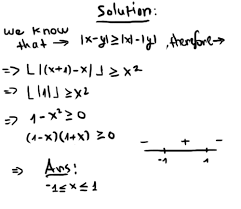 Solution:
we know
that → |x-y| ≥ |x|-|y| , therefore →
=> ⌊|(x+1)-x|⌋ ≥ x²
=> ⌊|1|⌋ ≥ x²
=> 1-x² ≥ 0
(1-x)(1+x) ≥ 0
- + -
-1 1
=> Ans:
-1 ≤ x ≤ 1